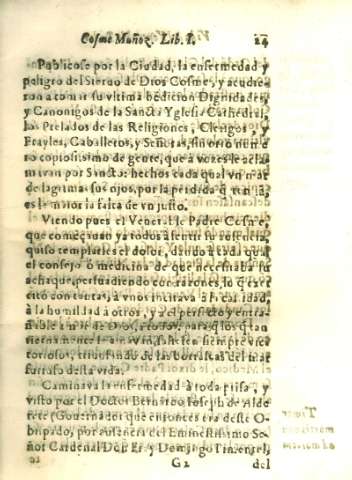 Cosme Muñoz. Lib. I. 24
Publicose por la Ciudad, la enfermedad y
peligro del Sieruo de Dios Cosme, y acudie-
ron a tomar su vltima bẽdicion Dignidades,
y Canonigos de la Sancta Yglesia Cathedral,
los Prelados de las Religiones, Clerigos, y
Frayles, Caballetos, y Señoras, sin otro nume
ro copiosissimo de gente, que a vozes le acla
mavan por Sancto: hechos cada qual vn mar
de lagrimas sus ojos, por la perdida q̃
es la maior la falta de vn justo.
Viendo pues el Vener. ble Padre Cosme,
que començauan ya todos a sentir su ausencia,
quiso templarles el dolor, dando a cada qual
el consejo ò medicina de que necesitaba su
achaque, persuadiendo con razones, lo q̃ exer
citò con tantas, à vnos incitava à la caridad,
à la humildad à otros, y el perfecto y entra-
ñable amor de Dios, a todos, para q̃ los q̃ tan
tiernamente le amavan, saliesen siempre vic-
toriosos, triunfando de las borrascas del mar
furioso desta vida.
Caminava la enfermedad à toda prisa, y
visto por el Doctor Bernardo Ioseph de Alde
rete (Gouernador que entonces era deste O-
bispado, por ausencia del Eminentissimo Se-
ñor Cardenal Don Fr. Domingo Pimentel,
G2 del